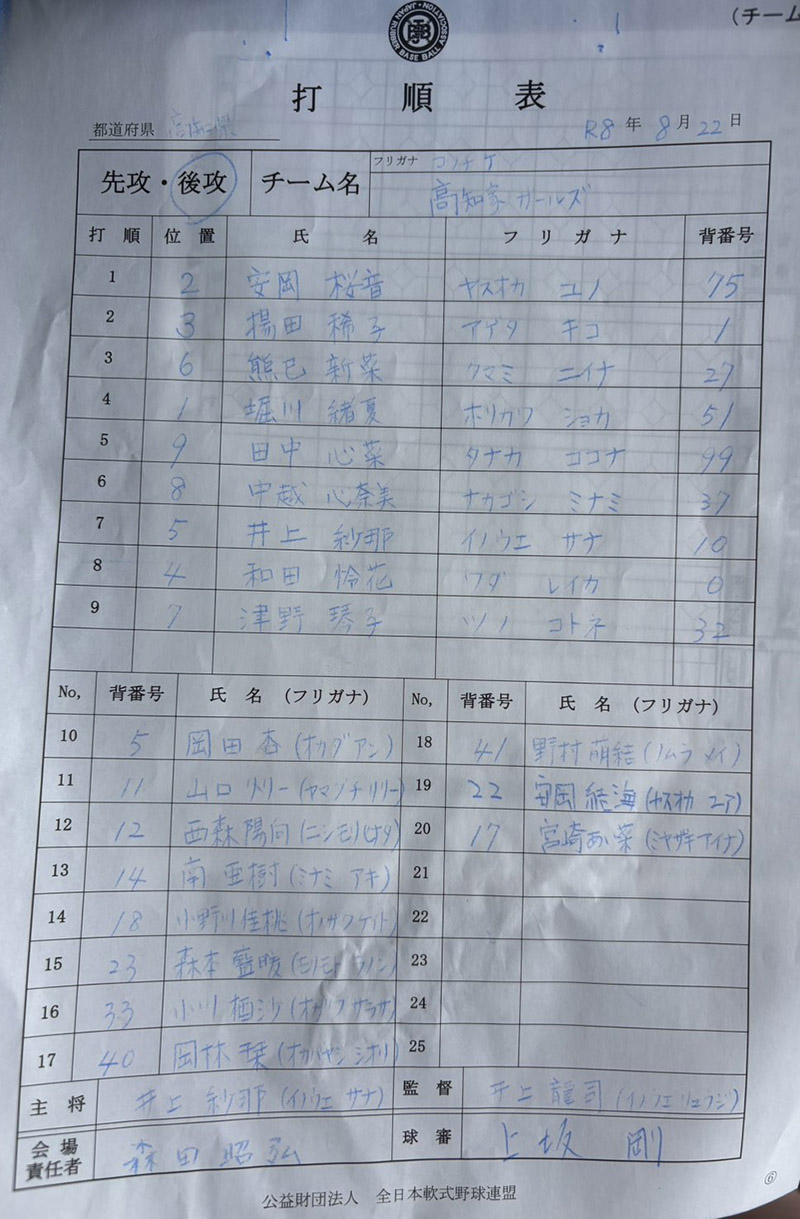 (チーム
JAPAN RUBBER BASE BALL ASSOCIATION
打順表
都道府県 高知県 R8年 8月 22日
先攻・後攻 チーム名 フリガナ コウチケ
高知家ガールズ
打順 位置 氏名 フリガナ 背番号
1 2 安岡 桜音 ヤスオカ ユノ 75
2 3 揚田 稀子 アゲタ キコ 1
3 6 熊巳 新菜 クマミ ニイナ 27
4 1 堀川 緒夏 ホリカワ ショカ 51
5 9 田中 心菜 タナカ ココナ 99
6 8 中越 心奈美 ナカゴシ ミナミ 37
7 5 井上 紗那 イノウエ サナ 10
8 4 和田 怜花 ワダ レイカ 0
9 7 津野 琴子 ツノ コトネ 32
No, 背番号 氏名 (フリガナ) No, 背番号 氏名 (フリガナ)
10 5 岡田 杏 (オカダ アン) 18 41 野村 萌結 (ノムラ メイ)
11 11 山口 リリー (ヤマグチ リリー) 19 22 安岡 結海 (ヤスオカ ユア)
12 12 西森 陽向 (ニシモリ ヒナタ) 20 17 宮崎 あい菜 (ミヤザキ アイナ)
13 14 南 亜樹 (ミナミ アキ) 21
14 18 小野川 佳桃 (オノガワ ケイト) 22
15 23 森本 藍暖 (モリモト ) 23
16 33 小川 (オガワ サラサ) 24
17 40 岡林 栞 (オカバヤシ シオリ) 25
主将 井上 紗那 (イノウエ サナ) 監督 井上 龍司 (イノウエ リュウジ)
会場責任者 森田 昭弘 球審 上坂 剛
公益財団法人 全日本軟式野球連盟
⑥